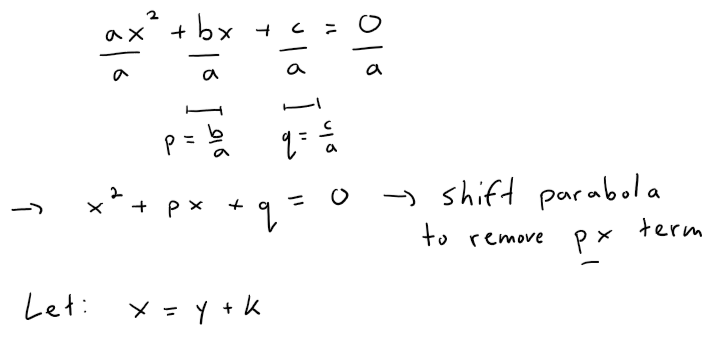 ax² + bx + c = 0
a a a a
p = b/a q = c/a
→ x² + px + q = 0 → shift parabola
to remove px term
Let: x = y + k